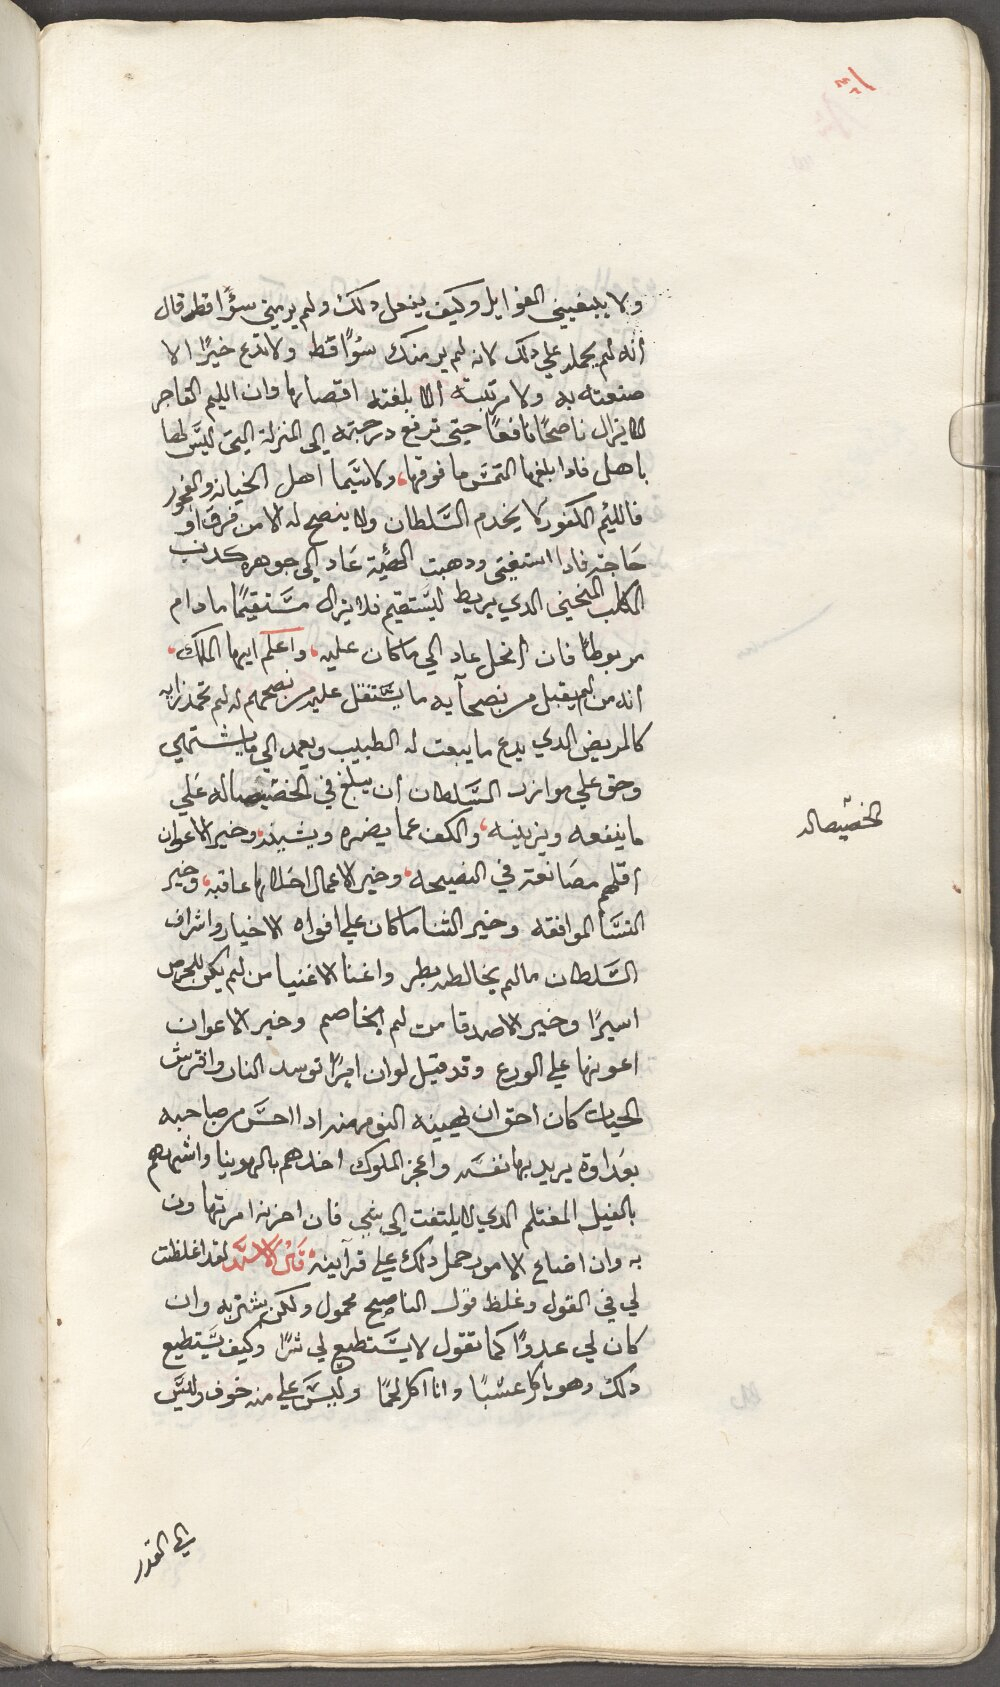 ولا يبغيني الغوايل وكيف يفعل دلك ولم يرمني سؤًا قط قال
انه لم يحمله علي دلك لانه لم ير منك سُوًا قط ولا تدع خيرًا الا
صنعته به ولا مرتبته الا بلغته اقتصارها وان الليم الفاجر
لا يزال ناصحًا نافعًا حتي ترفع درجته الي المنزلة التي ليس لها
باهل فادا بلغها التمس ما فوقها، ولا سيما اهل الخيانه والفجور
فالليم الكفور لا يخدم السلطان ولا ينصح له الا من فرق او
حاجه فادا استغني ودهبت الهيبة عاد الي جوهره كدنب
الكلب المنحني الدي يربط ليستقيم فلا يزال مستقيمًا ما دام
مربوطًا فان انحل عاد الي ما كان عليه، واعلم ايها الملك،
انه من لم يقبل من نصحآيه ما يستثقل عليه من نصحهم له لم تحمد رايه
كالمريض الدي يدع ما يبعت له الطبيب ويعمد الي ما يشتهي
وحق علي موازر السلطان ان يبلغ في التخصيص له علي
ما ينفعه ويزينه، والكف عما يضره ويشينه، وخير الاعوان
اقلهم مصانعة في النصيحه، وخير الاعمال احلاها عاقبه، وخير
النسا الموافقه وخير الثنا ما كان علي افواه الاخيار واشراف
السلطان مالم يخالطه بطر واغنا الاغنيا من لم يكن للحرص
اسيرًا وخير الاصدقا من لم يخاصم وخير الاعوان
اعونها علي الورع وقد قيل لو ان امرًا توسد النار وافترش
الحيات كان احق ان يهينه النوم منه ادا احس من صاحبه
بعداوة يريد بها نفسه واعجز الملوك اخدهم بالهوينا واشبههم
بالفيل المغتلم الدي لا يلتفت الي شي فان احزنه امر تهاون
به وان اضاع الامور حمل دلك علي قرآينه قال الاسد لقد اغلظت
لي في القول وغلظ قول الناصح محمول ولكن شتربه وان
كان لي عدوًا كما تقول لا يستطيع لي شرًا وكيف يستطيع
دلك وهو ياكل عشبًا وانا اكل لحمًا وليس علي منه خوف وليس
الي الغدر